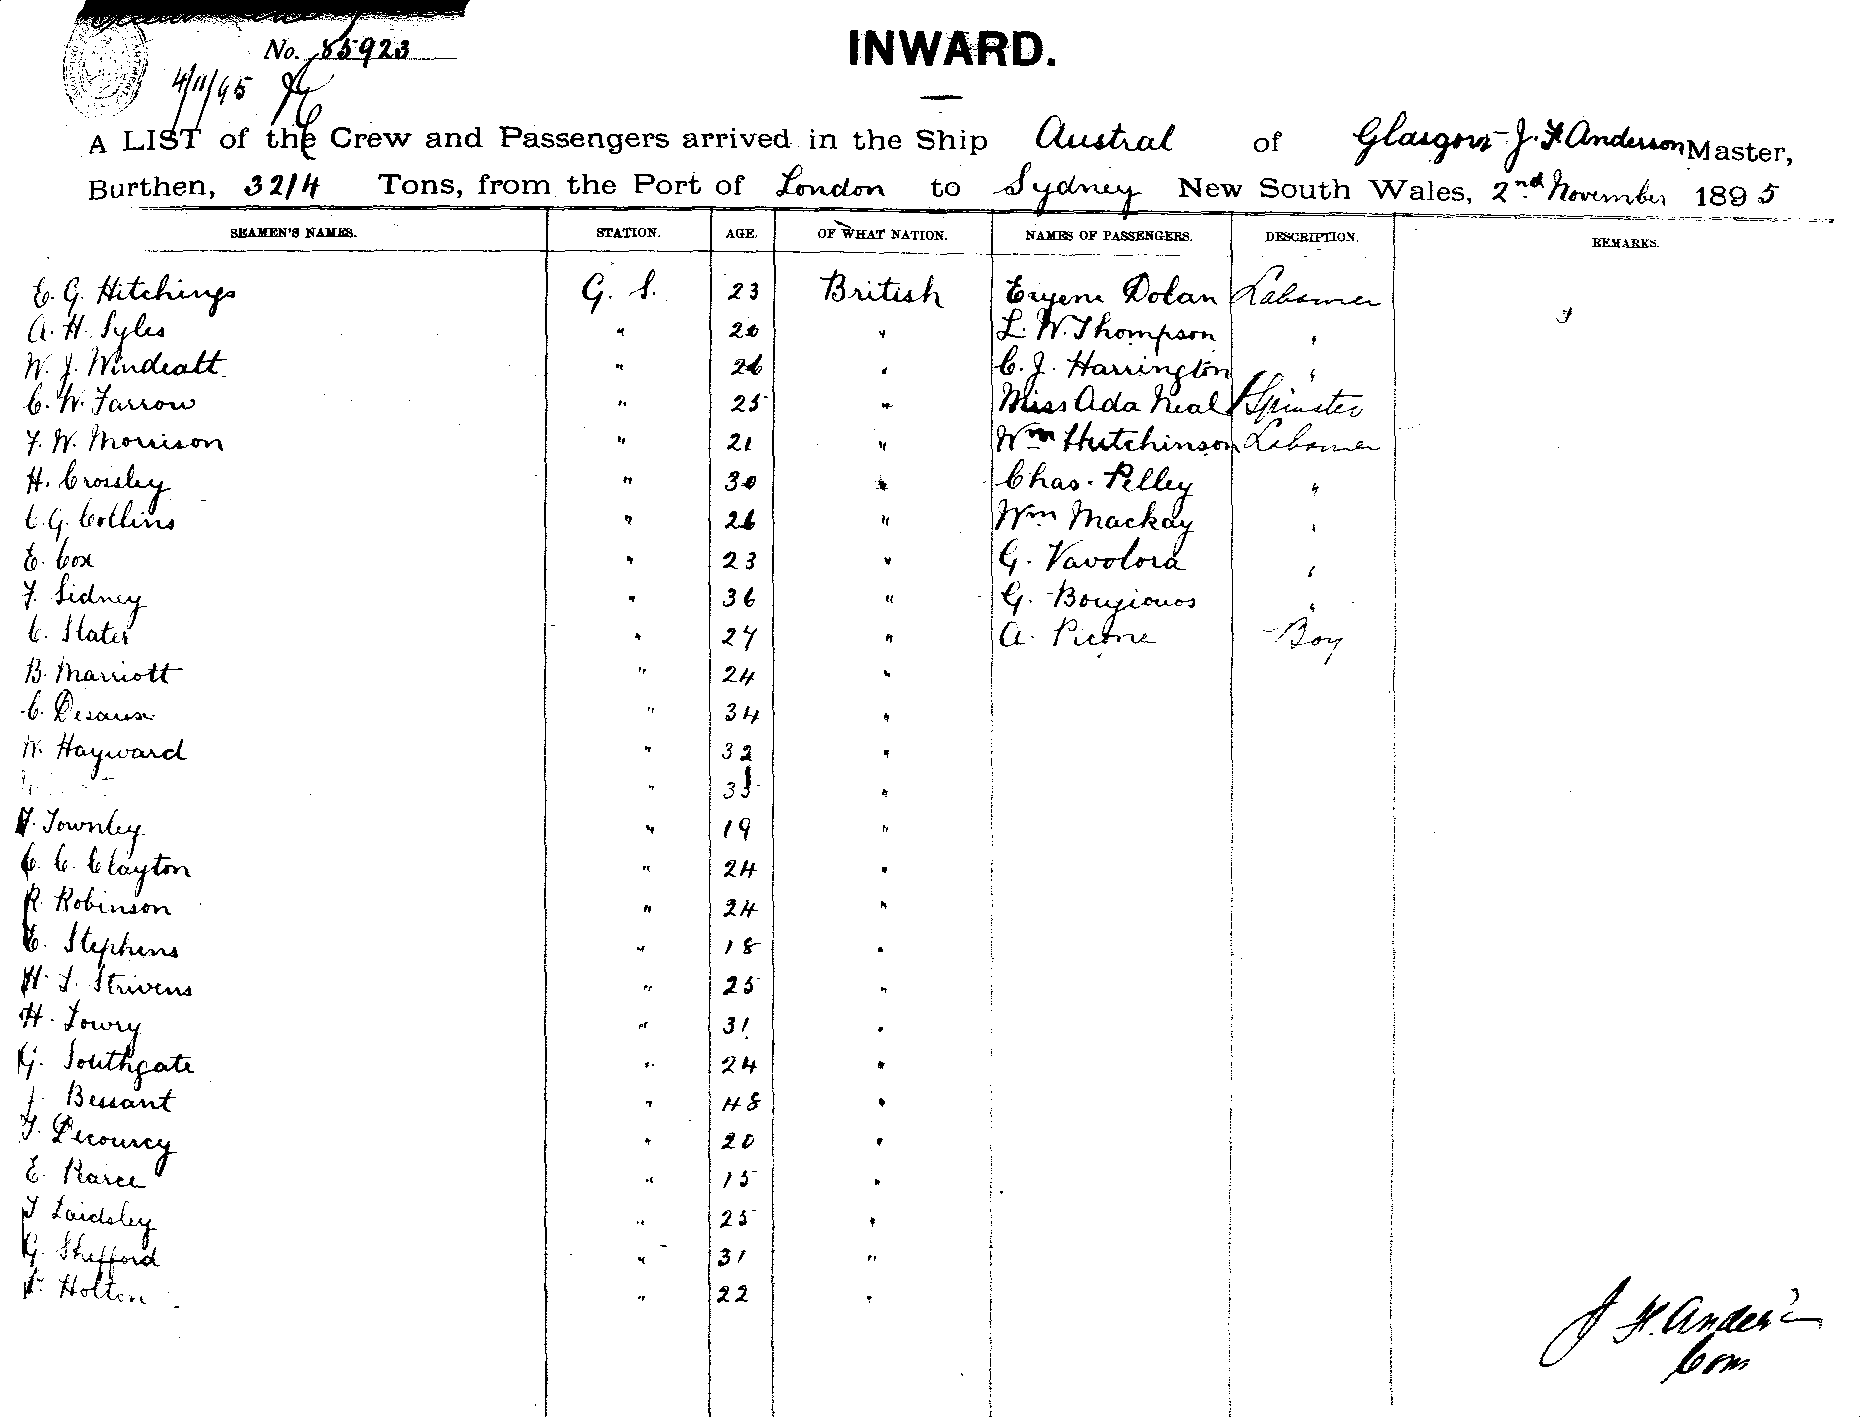 No. 85923
INWARD.
4/11/95
A LIST of the Crew and Passengers arrived in the Ship Austral of Glasgow J. F. Anderson Master,
Burthen, 3214 Tons, from the Port of London to Sydney New South Wales, 2nd November 1895
SEAMEN'S NAMES. STATION. AGE. OF WHAT NATION. NAMES OF PASSENGERS. DESCRIPTION. REMARKS.
E. G. Hitchings G. S. 23 British Eugene Dolan Labourer
A. H. Syles " 20 " L. W. Thompson "
W. J. Windeatt " 26 " C. J. Harrington "
C. W. Farrow " 25 " Miss Ada Neal Spinster
F. W. Morrison " 21 " Wm Hutchinson Labourer
H. Crossley " 30 " Chas. Pelley "
C. G. Collins " 26 " Wm Mackay "
E. Cox " 23 " G. Vavolora "
F. Sidney " 36 " G. Bougiouos "
C. Slater " 27 " A. Picone Boy
B. Marriott " 24 "
C. Desaux " 34 "
W. Hayward " 32 "
" 33 "
F. Townley " 19 "
C. C. Clayton " 24 "
R. Robinson " 24 "
E. Stephens " 18 "
H. T. Strivens " 25 "
H. Lowry " 31 "
G. Southgate " 24 "
J. Bessant " 48 "
F. Decourcy " 20 "
E. Pearce " 15 "
T. Laidsley " 25 "
G. Shefford " 31 "
Holten " 22 "
J F. Anders
Com